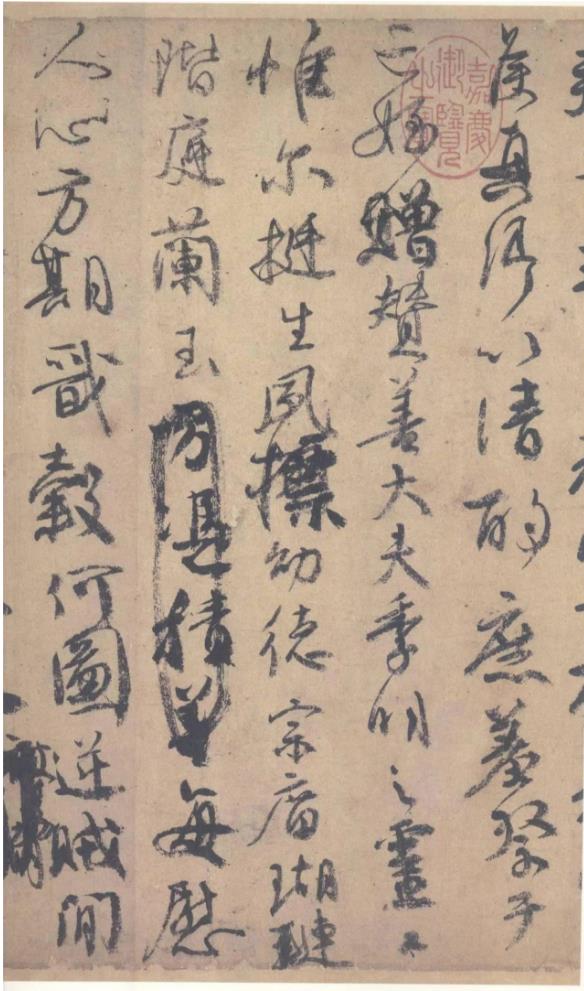 侯真卿以清酌庶羞祭于
亡姪贈贊善大夫季明之靈曰
惟尔挺生夙標幼德宗廟瑚璉
階庭蘭玉方憑積善每慰
人心方期戩穀何圖逆賊間
嘉慶御覽之寶